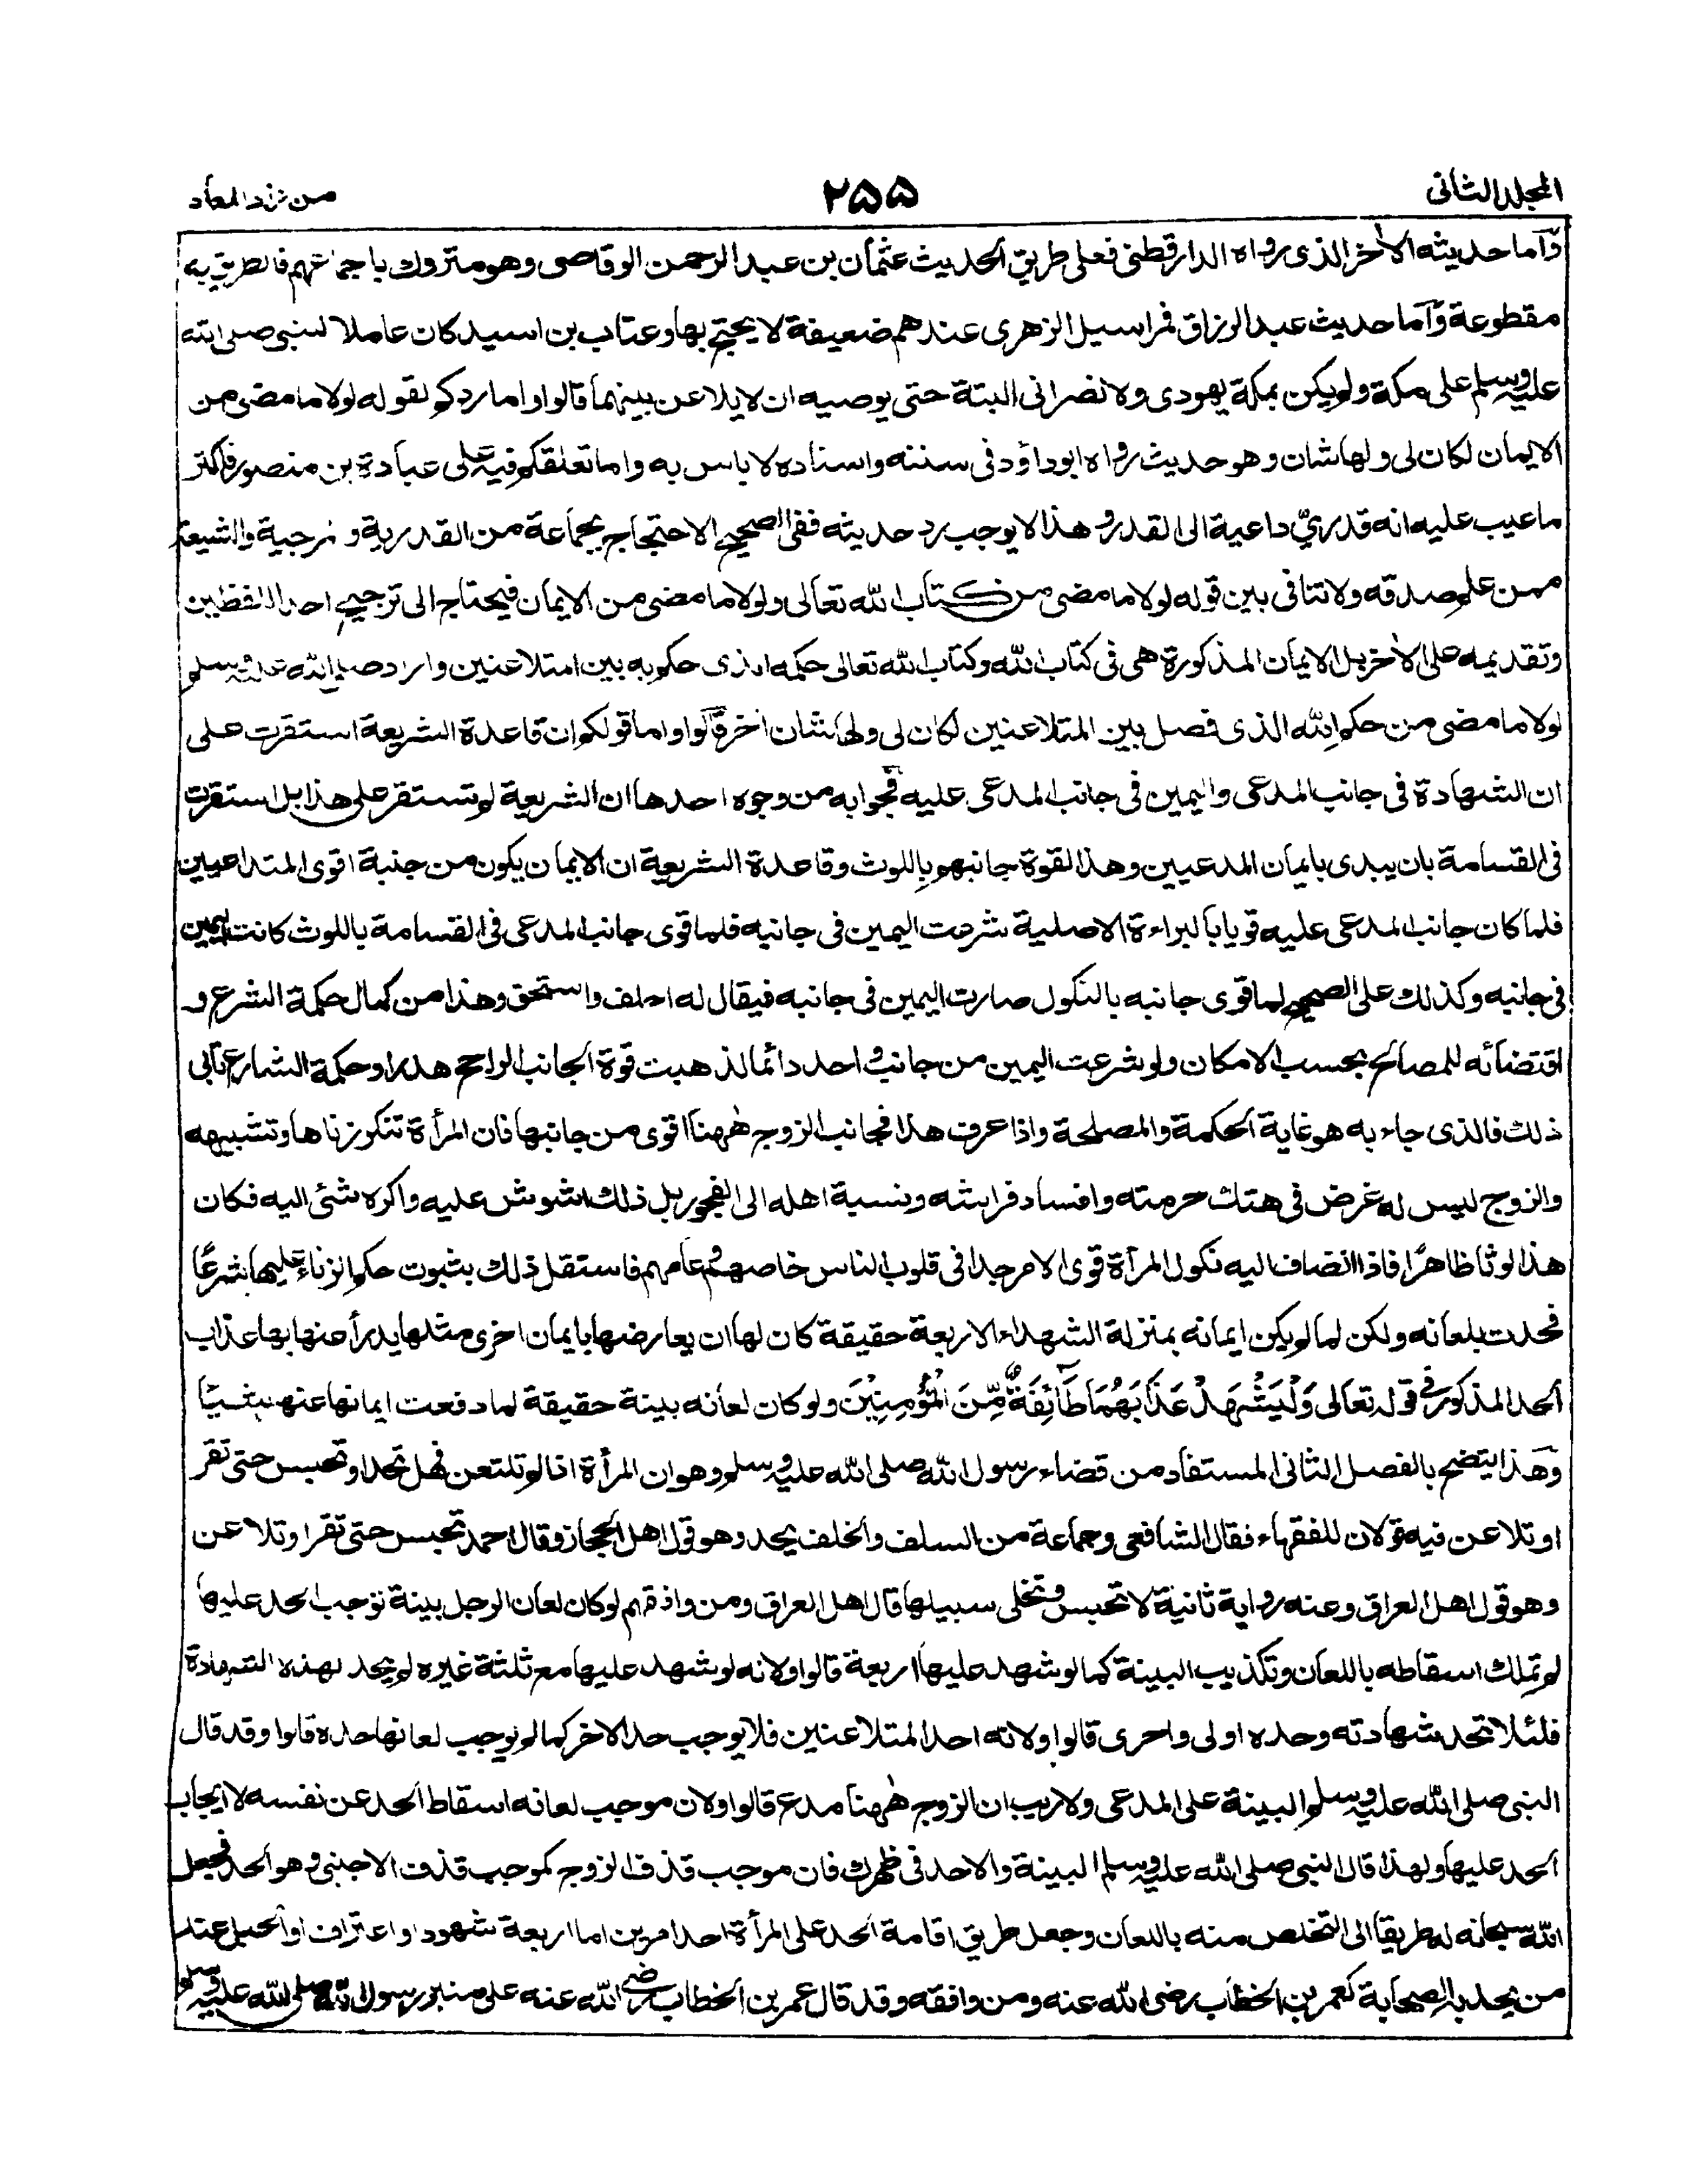 المجلد الثانى
٢٥٥
من زاد المعاد
وَّاَما حديثه الاٰخر الذى رواه الدارقطنى فعلى طريق الحديث عثمان بن عبد الرحمن الوقاصى وهو متروك باجماعهم فالطريق به
مقطوعة وَّاَما حديث عبد الرزاق فمراسيل الزهرى عندهم ضعيفة لا يحتج بها وعتاب بن اسيد كان عاملا للنبى صلى الله
عليه وسلم على مكة ولم يكن بمكة يهودى ولا نصرانى البتة حتى يوصيه ان لا يلاعن بينهما قالوا واما ردكم لقوله لولا ما مضى من
الايمان لكان لى ولها شان وهو حديث رواه ابو داؤد فى سننه واسناده لا باس به واما تعلقكم فيه على عبادة بن منصور فاكثر
ما عيب عليه انه قدرىٌّ داعية الى القدر و هذا لا يوجب رد حديثه ففى الصحيح الاحتجاج بجماعة من القدرية و المرجية والشيعة
ممن علم صدقه ولا تنافى بين قوله لولا ما مضى من كتاب الله تعالى ولولا ما مضى من الايمان فيحتاج الى ترجيح احد اللفظين
وتقديمه على الاٰخر بل الايمان المذكورة هى فى كتاب الله وكتاب الله تعالى حكمه الذى حكم به بين المتلاعنين واراد صلى الله عليه وسلم
لولا ما مضى من حكم الله الذى فصل بين المتلاعنين لكان لى ولها شان اٰخر قَالوا واما قولكم ان قاعدة الشريعة استقرت على
ان الشهادة فى جانب المدعى واليمين فى جانب المدعى عليه فجوابه من وجوه احدها ان الشريعة لم تستقر على هذا بل استقرت
فى القسامة بان يبدى بايمان المدعيين وهذا لقوة جانبهم باللوث وقاعدة الشريعة ان الايمان يكون من جنبة اقوى المتداعيين
فلما كان جانب المدعى عليه قويا بالبراءة الاصلية شرعت اليمين فى جانبه فلما قوى جانب المدعى فى القسامة باللوث كانت اليمين
فى جانبه وكذلك على الصحيح لما قوى جانبه بالنكول صارت اليمين فى جانبه فيقال له احلف واستحق وهذا من كمال حكمة الشرع و
اقتضائه للمصالح بحسب الامكان ولو شرعت اليمين من جانب واحد دائما لذهبت قوة الجانب الراجح هدرا وحكمة الشارع تابى
ذلك فالذى جاء به هو غاية الحكمة والمصلحة واذا عرف هذا فجانب الزوج هٰهنا اقوى من جانبها فان المرأة تنكر زناها وتشبهه
والزوج ليس له غرض فى هتك حرمته وافساد فراشه ونسبة اهله الى الفجور بل ذلك اشوش عليه واكره شئ اليه فكان
هذا لوثا ظاهرًا فاذا انضاف اليه نكول المرأة قوى الامر جدا فى قلوب الناس خاصهم وعامهم فاستقل ذلك بثبوت حكم الزناء عليها شرعًا
فحدت بلعانه ولكن لما لم يكن ايمانه بمنزلة الشهداء الاربعة حقيقة كان لها ان يعارضها بايمان اخرى مثلها يدرأ عنها بها عذاب
الحد المذكور فى قوله تعالى وَلْيَشْهَدْ عَذَابَهُمَا طَآئِفَةٌ مِّنَ الْمُؤْمِنِيْنَ ولو كان لعانه بينة حقيقة لما دفعت ايمانها عنها شيئًا
وهٰذا يتضح بالفصل الثانى المستفاد من قضاء رسول الله صلى الله عليه وسلم وهو ان المرأة اذا لم تلتعن فهل تحد او تحبس حتى تقر
او تلاعن فيه قولان للفقهاء فقال الشافعى وجماعة من السلف والخلف يحد وهو قول اهل الحجاز وقال احمد تحبس حتى تقر او تلاعن
وهو قول اهل العراق وعنه رواية ثانية لا تحبس وتخلى سبيلها قال اهل العراق ومن وافقهم لو كان لعان الرجل بينة توجب الحد عليها
لم تملك اسقاطه باللعان وتكذيب البينة كما لو شهد عليها اربعة قالوا ولانه لو شهد عليها مع ثلثة غيره لم يحد بهذه الشهادة
فلئلا تحد بشهادته وحده اولى واحرى قالوا ولانه احد المتلاعنين فلا يوجب حد الاخر كما لم يوجب لعانها حده قالوا وقد قال
النبى صلى الله عليه وسلم البينة على المدعى ولا ريب ان الزوج هٰهنا مدع قالوا ولان موجب لعانه اسقاط الحد عن نفسه لا ايجاب
الحد عليها ولهذا قال النبى صلى الله عليه وسلم البينة والا حد فى ظهرك فان موجب قذف الزوج كموجب قذف الاجنبى وهو الحد فجعل
الله سبحانه له طريقا الى التخلص منه باللعان وجعل طريق اقامة الحد على المرأة احد امرين اما اربعة شهود او اعتراف او الحبل عند
من يحد به الصحابة كعمر بن الخطاب رضى الله عنه ومن وافقه وقد قال عمر بن الخطاب رضى الله عنه على منبر رسول الله صلى الله عليه وسلم